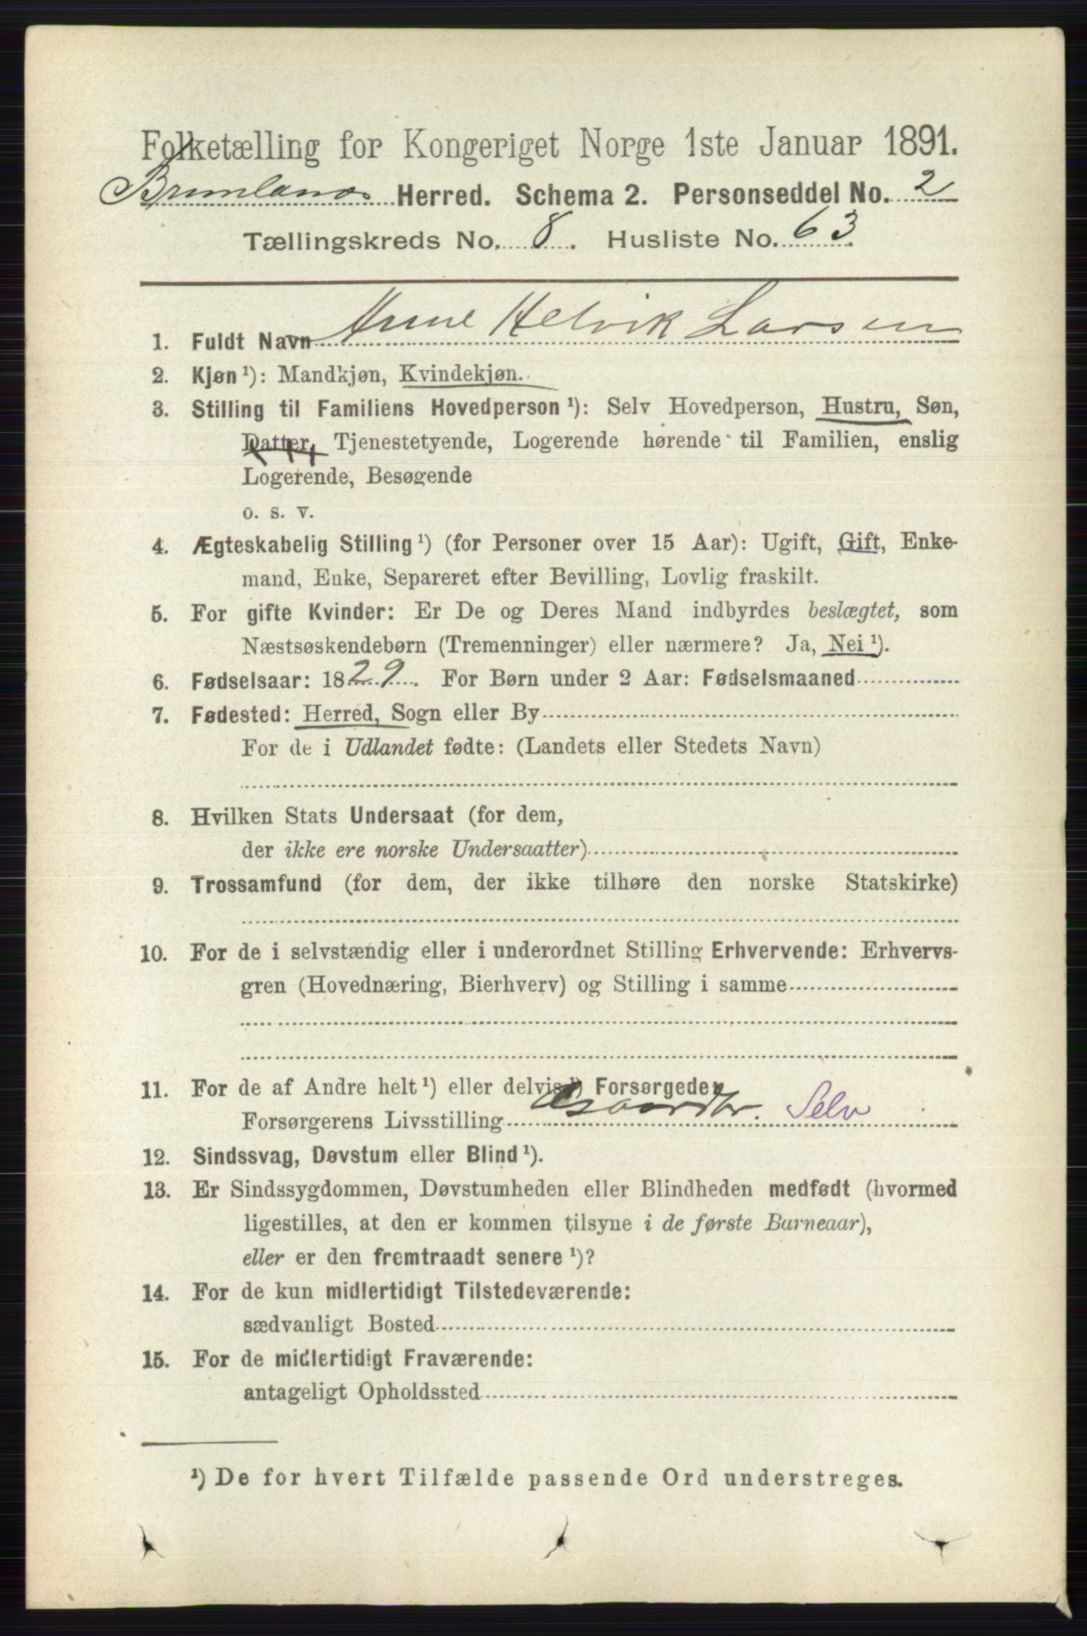 Folketælling for Kongeriget Norge 1ste Januar 1891.
Brunlanæs Herred. Schema 2. Personseddel No. 2
Tællingskreds No. 8. Husliste No. 63.
1. Fuldt Navn Anne Helvik Larsen
2. Kjøn ¹): Mandkjøn, Kvindekjøn.
3. Stilling til Familiens Hovedperson ¹): Selv Hovedperson, Hustru, Søn,
Datter, Tjenestetyende, Logerende hørende til Familien, enslig
Logerende, Besøgende
o. s. v.
4. Ægteskabelig Stilling ¹) (for Personer over 15 Aar): Ugift, Gift, Enke-
mand, Enke, Separeret efter Bevilling, Lovlig fraskilt.
5. For gifte Kvinder: Er De og Deres Mand indbyrdes beslægtet, som
Næstsøskendebørn (Tremenninger) eller nærmere? Ja, Nei ¹).
6. Fødselsaar: 1829. For Børn under 2 Aar: Fødselsmaaned
7. Fødested: Herred, Sogn eller By
For de i Udlandet fødte: (Landets eller Stedets Navn)
8. Hvilken Stats Undersaat (for dem,
der ikke ere norske Undersaatter)
9. Trossamfund (for dem, der ikke tilhøre den norske Statskirke)
10. For de i selvstændig eller i underordnet Stilling Erhvervende: Erhvervs-
gren (Hovednæring, Bierhverv) og Stilling i samme
11. For de af Andre helt ¹) eller delvis ¹) Forsørgede,
Forsørgerens Livsstilling Selv
12. Sindssvag, Døvstum eller Blind ¹).
13. Er Sindssygdommen, Døvstumheden eller Blindheden medfødt (hvormed
ligestilles, at den er kommen tilsyne i de første Barneaar),
eller er den fremtraadt senere ¹)?
14. For de kun midlertidigt Tilstedeværende:
sædvanligt Bosted
15. For de midlertidigt Fraværende:
antageligt Opholdssted
¹) De for hvert Tilfælde passende Ord understreges.